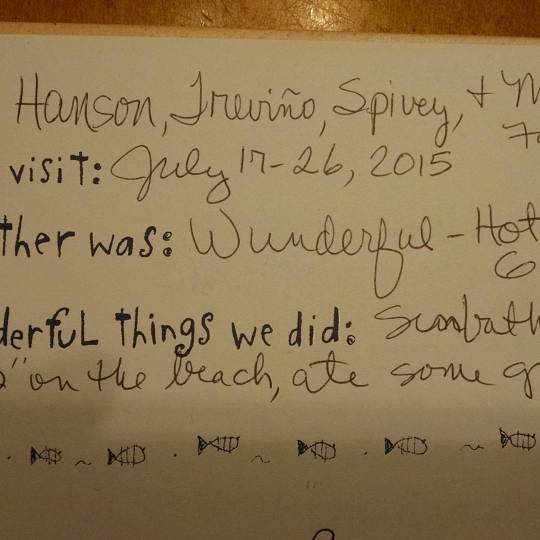 Hanson, Treviño, Spivey, + M
visit: July 17-26, 2015
ther was: Wunderful - Hot
derful things we did: Sunbath
" on the beach, ate some g